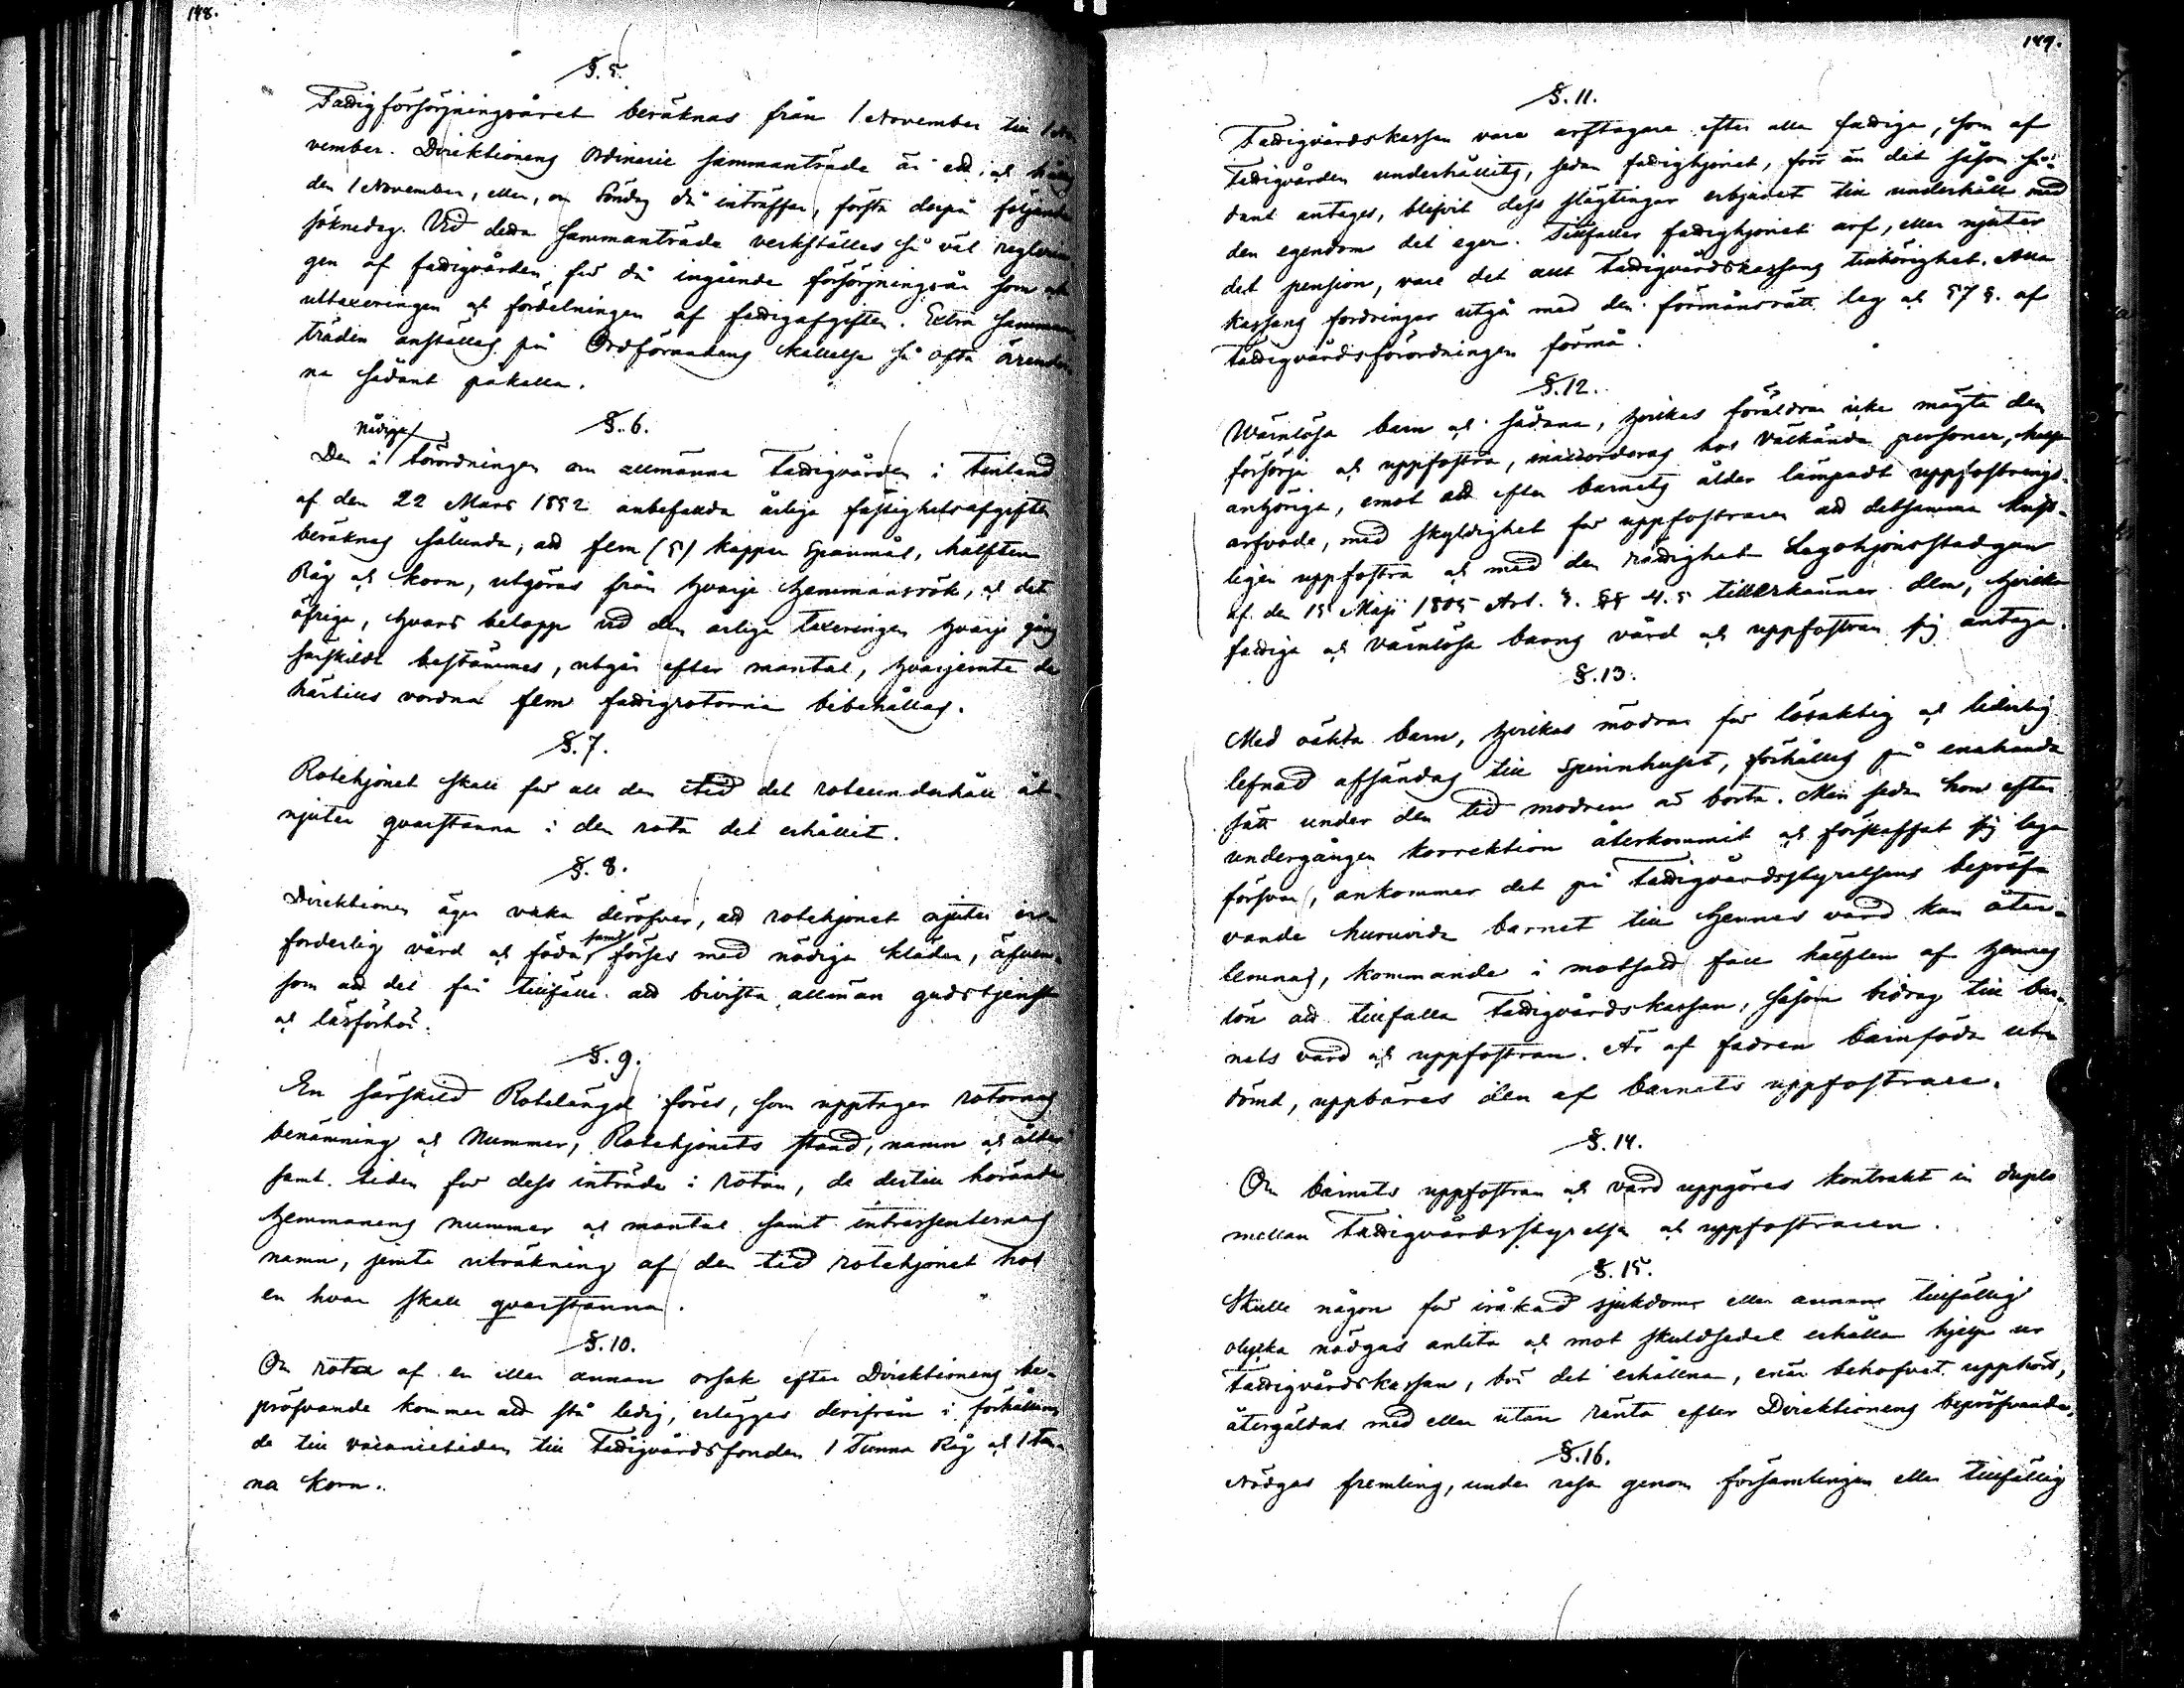 148.
§. 5.
Fattigförsörjningsåret beräknas från 1 November till 1 No
vember. Direktionens Ordinarie sammanträde är att och hålles
den 1 November, eller, om Söndag då inträffar, första derpå följande
söknedag. Vid detta sammanträde verkställes så väl reglerin
gen af fattigvården för då ingående försörjningsår som ock
uttaxeringen och fördelningen af fattigafgiften. Extra samman
träden anställes på Ordförandens kallelse så ofta ärender
na sådant påkalla.
§. 6.
Nådiga
Den i Förordningen om allmänna Fattigvården i Finland
af den 22 Mars 1852 anbefallda årliga fastighetsafgiften
beräknas sålunda, att fem (5) kappar Spanmål, hälften
Råg och Korn, utgöras från hvarje Hemmansrök, och det
öfriga, hvars belopp vid den årliga taxeringen hvarje gång
särskildt bestämmes, utgår efter mantal, hvarjemte de
härtills vordna fem fattigrotarna bibehållas.
§. 7.
Rotehjonet skall för all den tid det roteunderhåll åt-
njuter qvarstanna i den rota det erhållit.
§. 8.
Direktionen äger vaka deröfver, att rotehjonet njuter er-
forderlig vård och föda, samt förses med nödiga kläder, äfven-
som att det får tillfälle att bivista allmän gudstjenst
och läsförhör.
§. 9.
En särskild Rotelängd föres, som upptager rotornas
benämning och Nummer, Rotehjonets stånd, namn och ålder
samt tiden för dess inträde i rotan, de dertill hörande
Hemmanens nummer och mantal samt intressenternas
namn, jemte uträkning af den tid rotehjonet hos
en hvar skall qvarstanna.
§. 10.
Om rota af en eller annan orsak efter Direktionens be-
pröfvande kommer att stå ledig, erlägges derifrån i förhållan
de till vacancetiden till Fattigvårdsfonden 1 Tunna Råg och 1 Tun-
na Korn.
149.
§. 11.
Fattigvårdskassan vare arftagare efter alla fattiga, som af
Fattigvården underhållits, sedan fattighjonet, förr än det såsom så-
dant antages, blifvit dess slägtingar erbjudet till underhåll med
den egendom det eger. Tillfaller fattighjonet arf, eller njuter
det pension, vare det allt Fattigvårdskassans tillhörighet. Alla
kassans fordringar utgå med den förmånsrätt lag och 57 §. af
Fattigvårdsförordningen förmå.
§. 12.
Wärnlösa barn och sådana, hvilkas föräldrar icke mägta dem
försörja och uppfostra, inaccorderas hos välkända personer, helst
anhöriga, emot ett efter barnets ålder lämpadt uppfostrings-
arfvode, med skyldighet för uppfostraren att detsamma Krist-
ligen uppfostra och med den rättighet Legohjonsstadgan
af den 15 Maji 1805 Art. 3. §§ 4. 5 tillerkänner dem, hvilka
fattiga och värnlösa barns vård och uppfostran sig antaga.
§. 13.
Med oäkta barn, hvilkas mödrar för lösaktig och liderlig
lefnad afsändas till Spinnhuset, förhålles på enahanda
sätt under den tid modren är borta. Men sedan hon efter
undergången korrektion återkommit och förskaffat sig laga
försvar, ankommer det på Fattigvårdsstyrelsens bepröf-
vande huruvida barnet till hennes vård kan åter-
lemnas, kommande i motsatt fall hälften af hennes
lön att tillfalla Fattigvårdskassan, såsom bidrag till bar-
nets vård och uppfostran. Är af fadren barnföda ut-
dömd, uppbäres den af barnets uppfostrare.
§. 14.
Om barnets uppfostran och vård uppgöres kontrakt in duplo
mellan Fattigvårdsstyrelsen och uppfostraren.
§. 15.
Skulle någon för iråkad sjukdom eller annan tillfällig
olycka nödgas anlita och mot skuldsedel erhålla hjelp ur
Fattigvårdskassan, bör det erhållna, enär behofvet upphört,
återgäldas med eller utan ränta efter Direktionens bepröfvande.
§. 16.
Nödgas fremling, under resa genom församlingen eller tillfällig